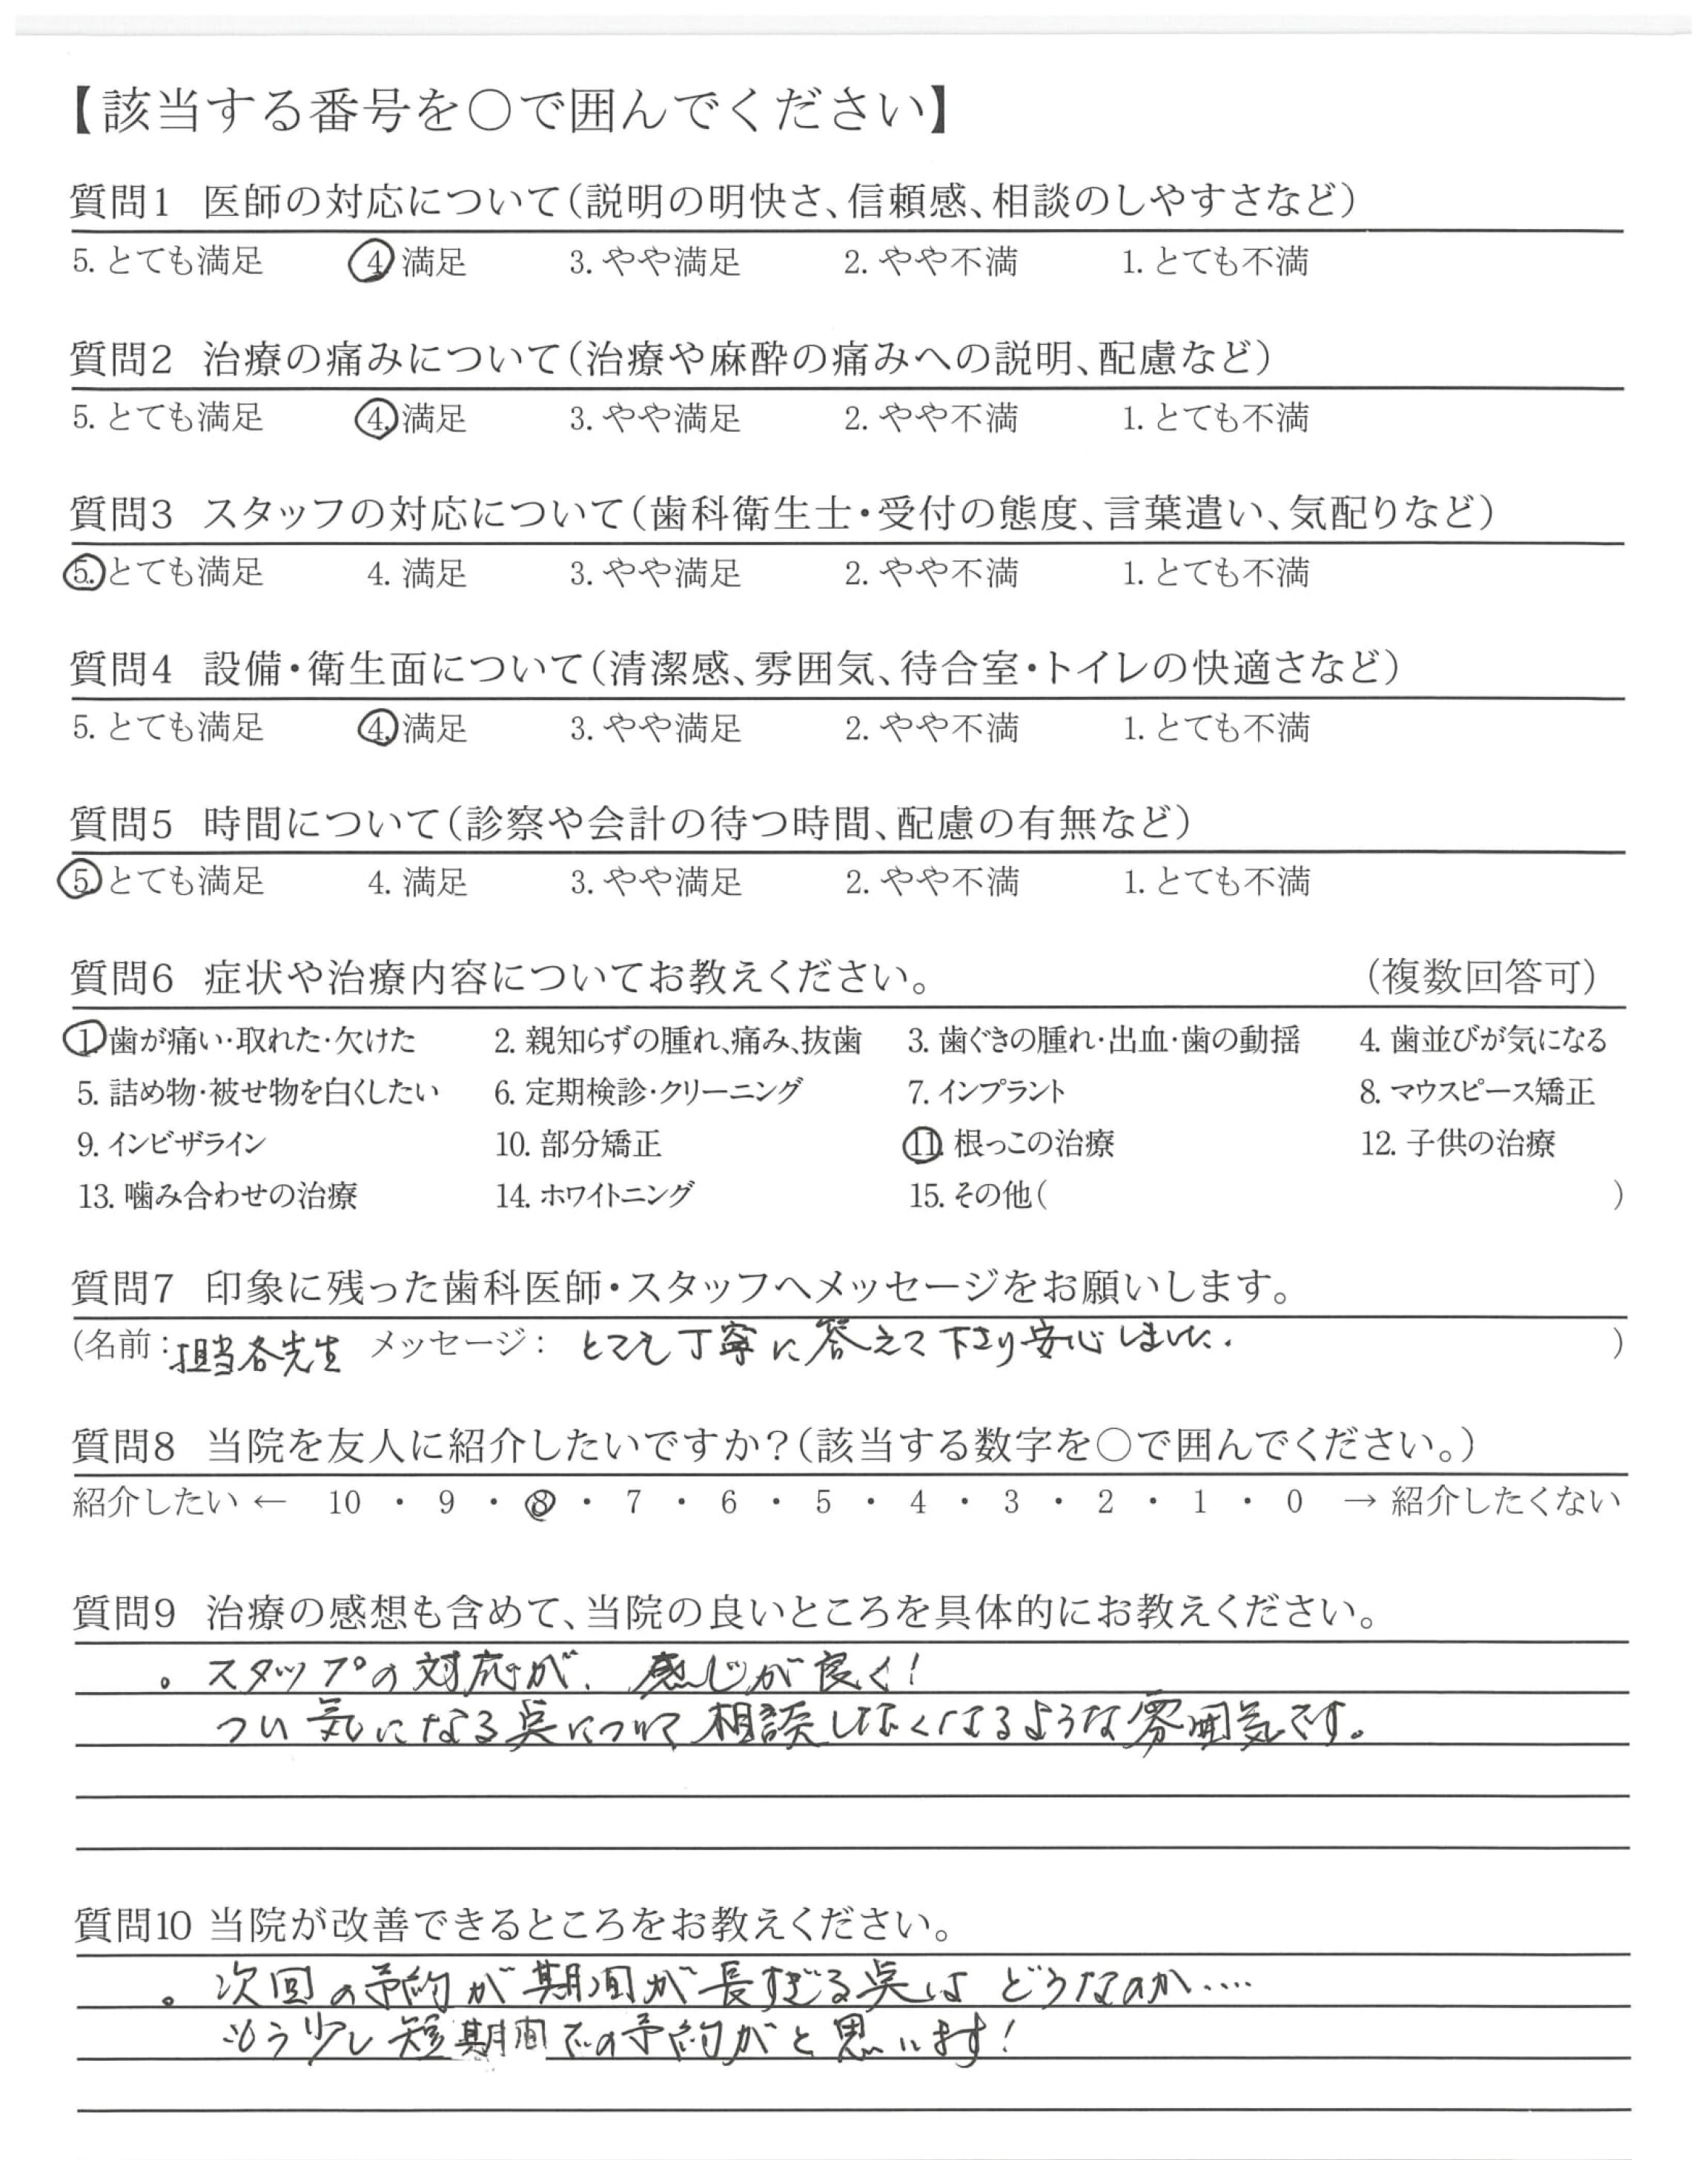 【該当する番号を○で囲んでください】
質問1 医師の対応について(説明の明快さ、信頼感、相談のしやすさなど)
5. とても満足 4. 満足 3. やや満足 2. やや不満 1. とても不満
質問2 治療の痛みについて(治療や麻酔の痛みへの説明、配慮など)
5. とても満足 4. 満足 3. やや満足 2. やや不満 1. とても不満
質問3 スタッフの対応について(歯科衛生士・受付の態度、言葉遣い、気配りなど)
5. とても満足 4. 満足 3. やや満足 2. やや不満 1. とても不満
質問4 設備・衛生面について(清潔感、雰囲気、待合室・トイレの快適さなど)
5. とても満足 4. 満足 3. やや満足 2. やや不満 1. とても不満
質問5 時間について(診察や会計の待つ時間、配慮の有無など)
5. とても満足 4. 満足 3. やや満足 2. やや不満 1. とても不満
質問6 症状や治療内容についてお教えください。 (複数回答可)
1. 歯が痛い・取れた・欠けた 2. 親知らずの腫れ、痛み、抜歯 3. 歯ぐきの腫れ・出血・歯の動揺 4. 歯並びが気になる
5. 詰め物・被せ物を白くしたい 6. 定期検診・クリーニング 7. インプラント 8. マウスピース矯正
9. インビザライン 10. 部分矯正 11. 根っこの治療 12. 子供の治療
13. 噛み合わせの治療 14. ホワイトニング 15. その他( )
質問7 印象に残った歯科医師・スタッフへメッセージをお願いします。
(名前: 担当各先生 メッセージ: とても丁寧に答えて下さり安心しました. )
質問8 当院を友人に紹介したいですか?(該当する数字を○で囲んでください。)
紹介したい ← 10 ・ 9 ・ 8 ・ 7 ・ 6 ・ 5 ・ 4 ・ 3 ・ 2 ・ 1 ・ 0 → 紹介したくない
質問9 治療の感想も含めて、当院の良いところを具体的にお教えください。
。スタップの対応が、感じが良く!
つい気になる点について相談したくなるような雰囲気です。
質問10 当院が改善できるところをお教えください。
。次回の予約が期間が長すぎる点はどうなのか....
もう少し短期間での予約がと思います!